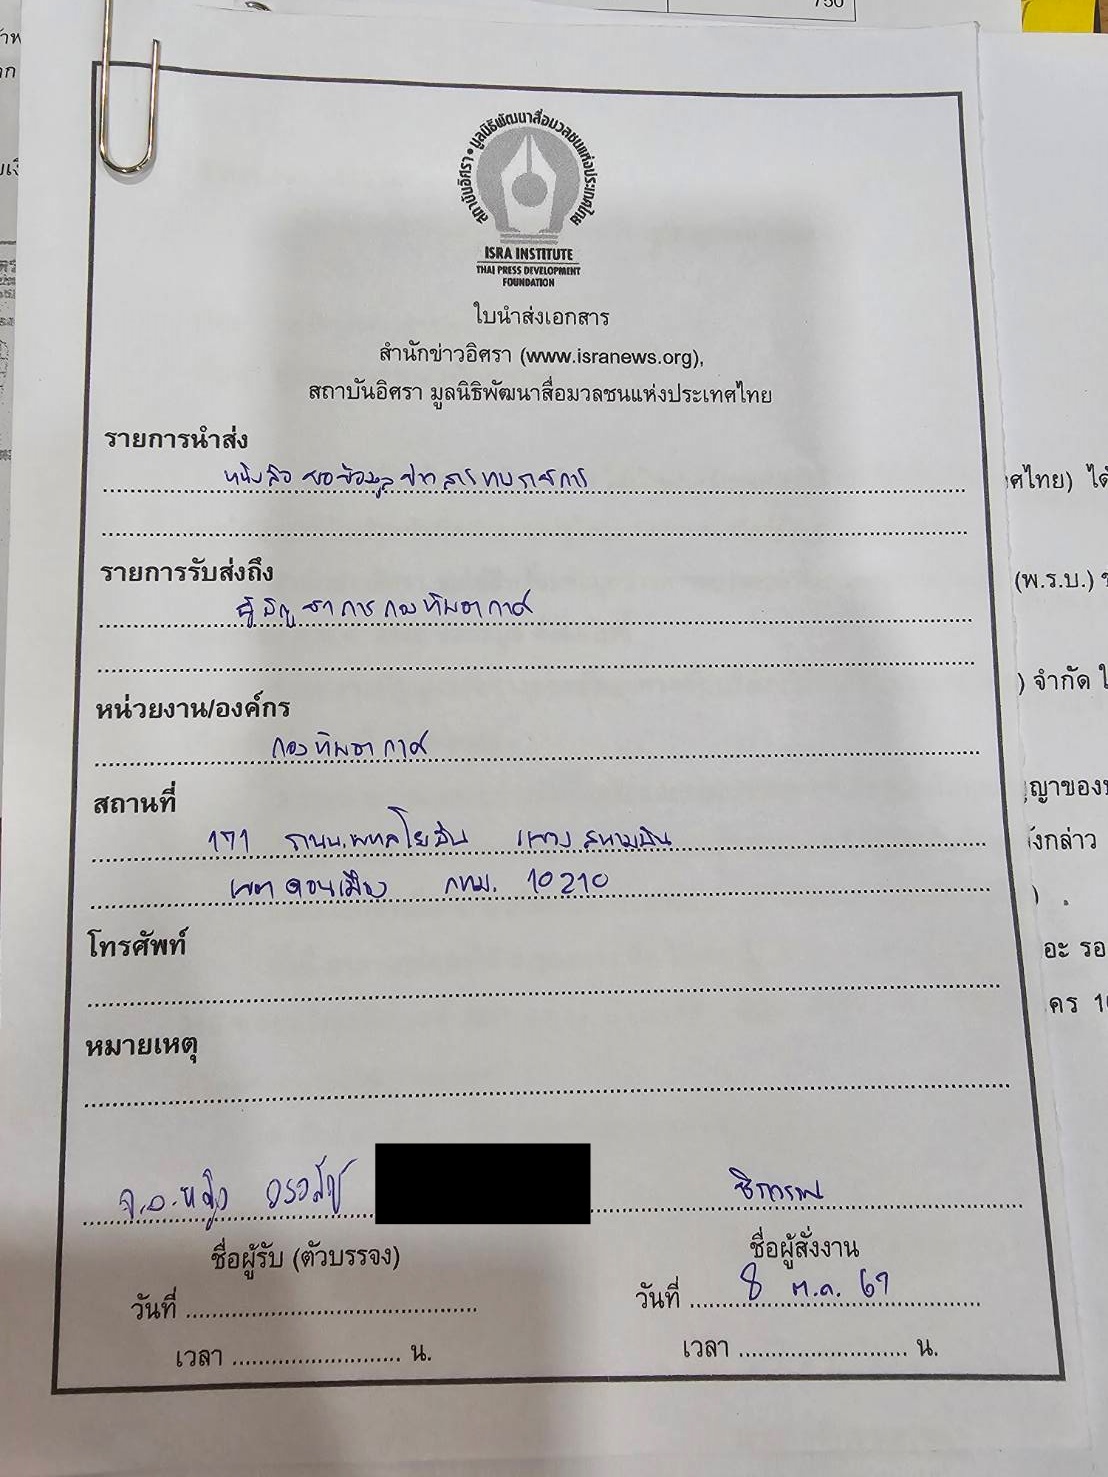 750
สถาบันอิศรา • มูลนิธิพัฒนาสื่อมวลชนแห่งประเทศไทย
ISRA INSTITUTE
THAI PRESS DEVELOPMENT
FOUNDATION
ใบนำส่งเอกสาร
สำนักข่าวอิศรา (www.isranews.org),
สถาบันอิศรา มูลนิธิพัฒนาสื่อมวลชนแห่งประเทศไทย
รายการนำส่ง
หนังสือ ขอข้อมูลข่าวสารทางราชการ
รายการรับส่งถึง
ผู้บัญชาการกองทัพอากาศ
หน่วยงาน/องค์กร
กองทัพอากาศ
สถานที่
171 ถนนพหลโยธิน แขวงสนามบิน
เขตดอนเมือง กทม. 10210
โทรศัพท์
หมายเหตุ
จ.อ.หญิง
ชื่อผู้รับ (ตัวบรรจง)
ชื่อผู้สั่งงาน
วันที่
วันที่ 8 ต.ค. 67
เวลา น.
เวลา น.
ศไทย) ได้
(พ.ร.บ.) ข
) จำกัด ใ
ญาของ
งกล่าว
อะ รอ
คร 1